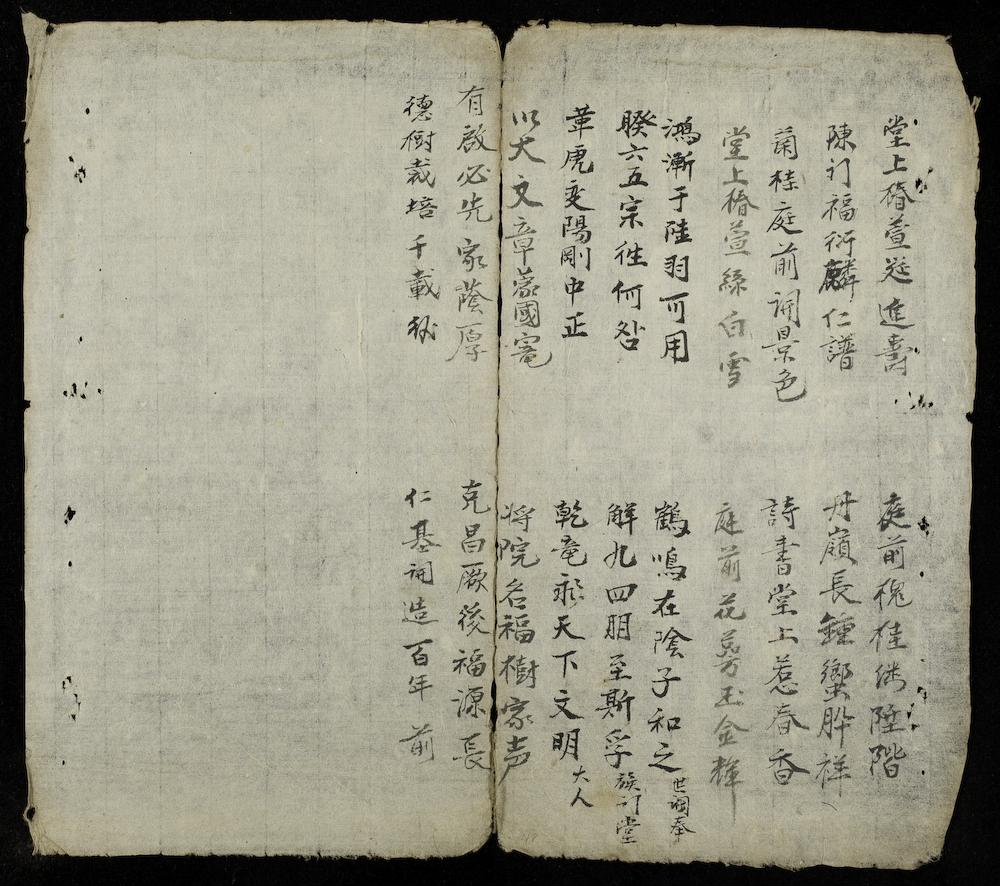 堂上椿萱進壽
庭前槐桂陞階
陳門福衍麟仁譜
丹嶺長鍾蠁肸祥
蘭桂庭前開景色
詩書堂上惹春香
堂上椿萱絲白雪
庭前花萼玉金輝
鴻漸于陸羽可用
鶴鳴在陰子和之
世祠奉
睽六五宗往何咎
解九四朋至斯孚
族訂堂
革虎变陽剛中正
乾竜天下文明
大人
以大文章蒙國寵
将院名福樹家声
有啟必先家蔭厚
克昌厥後福源長
德樹栽培千載
仁基開造百年前